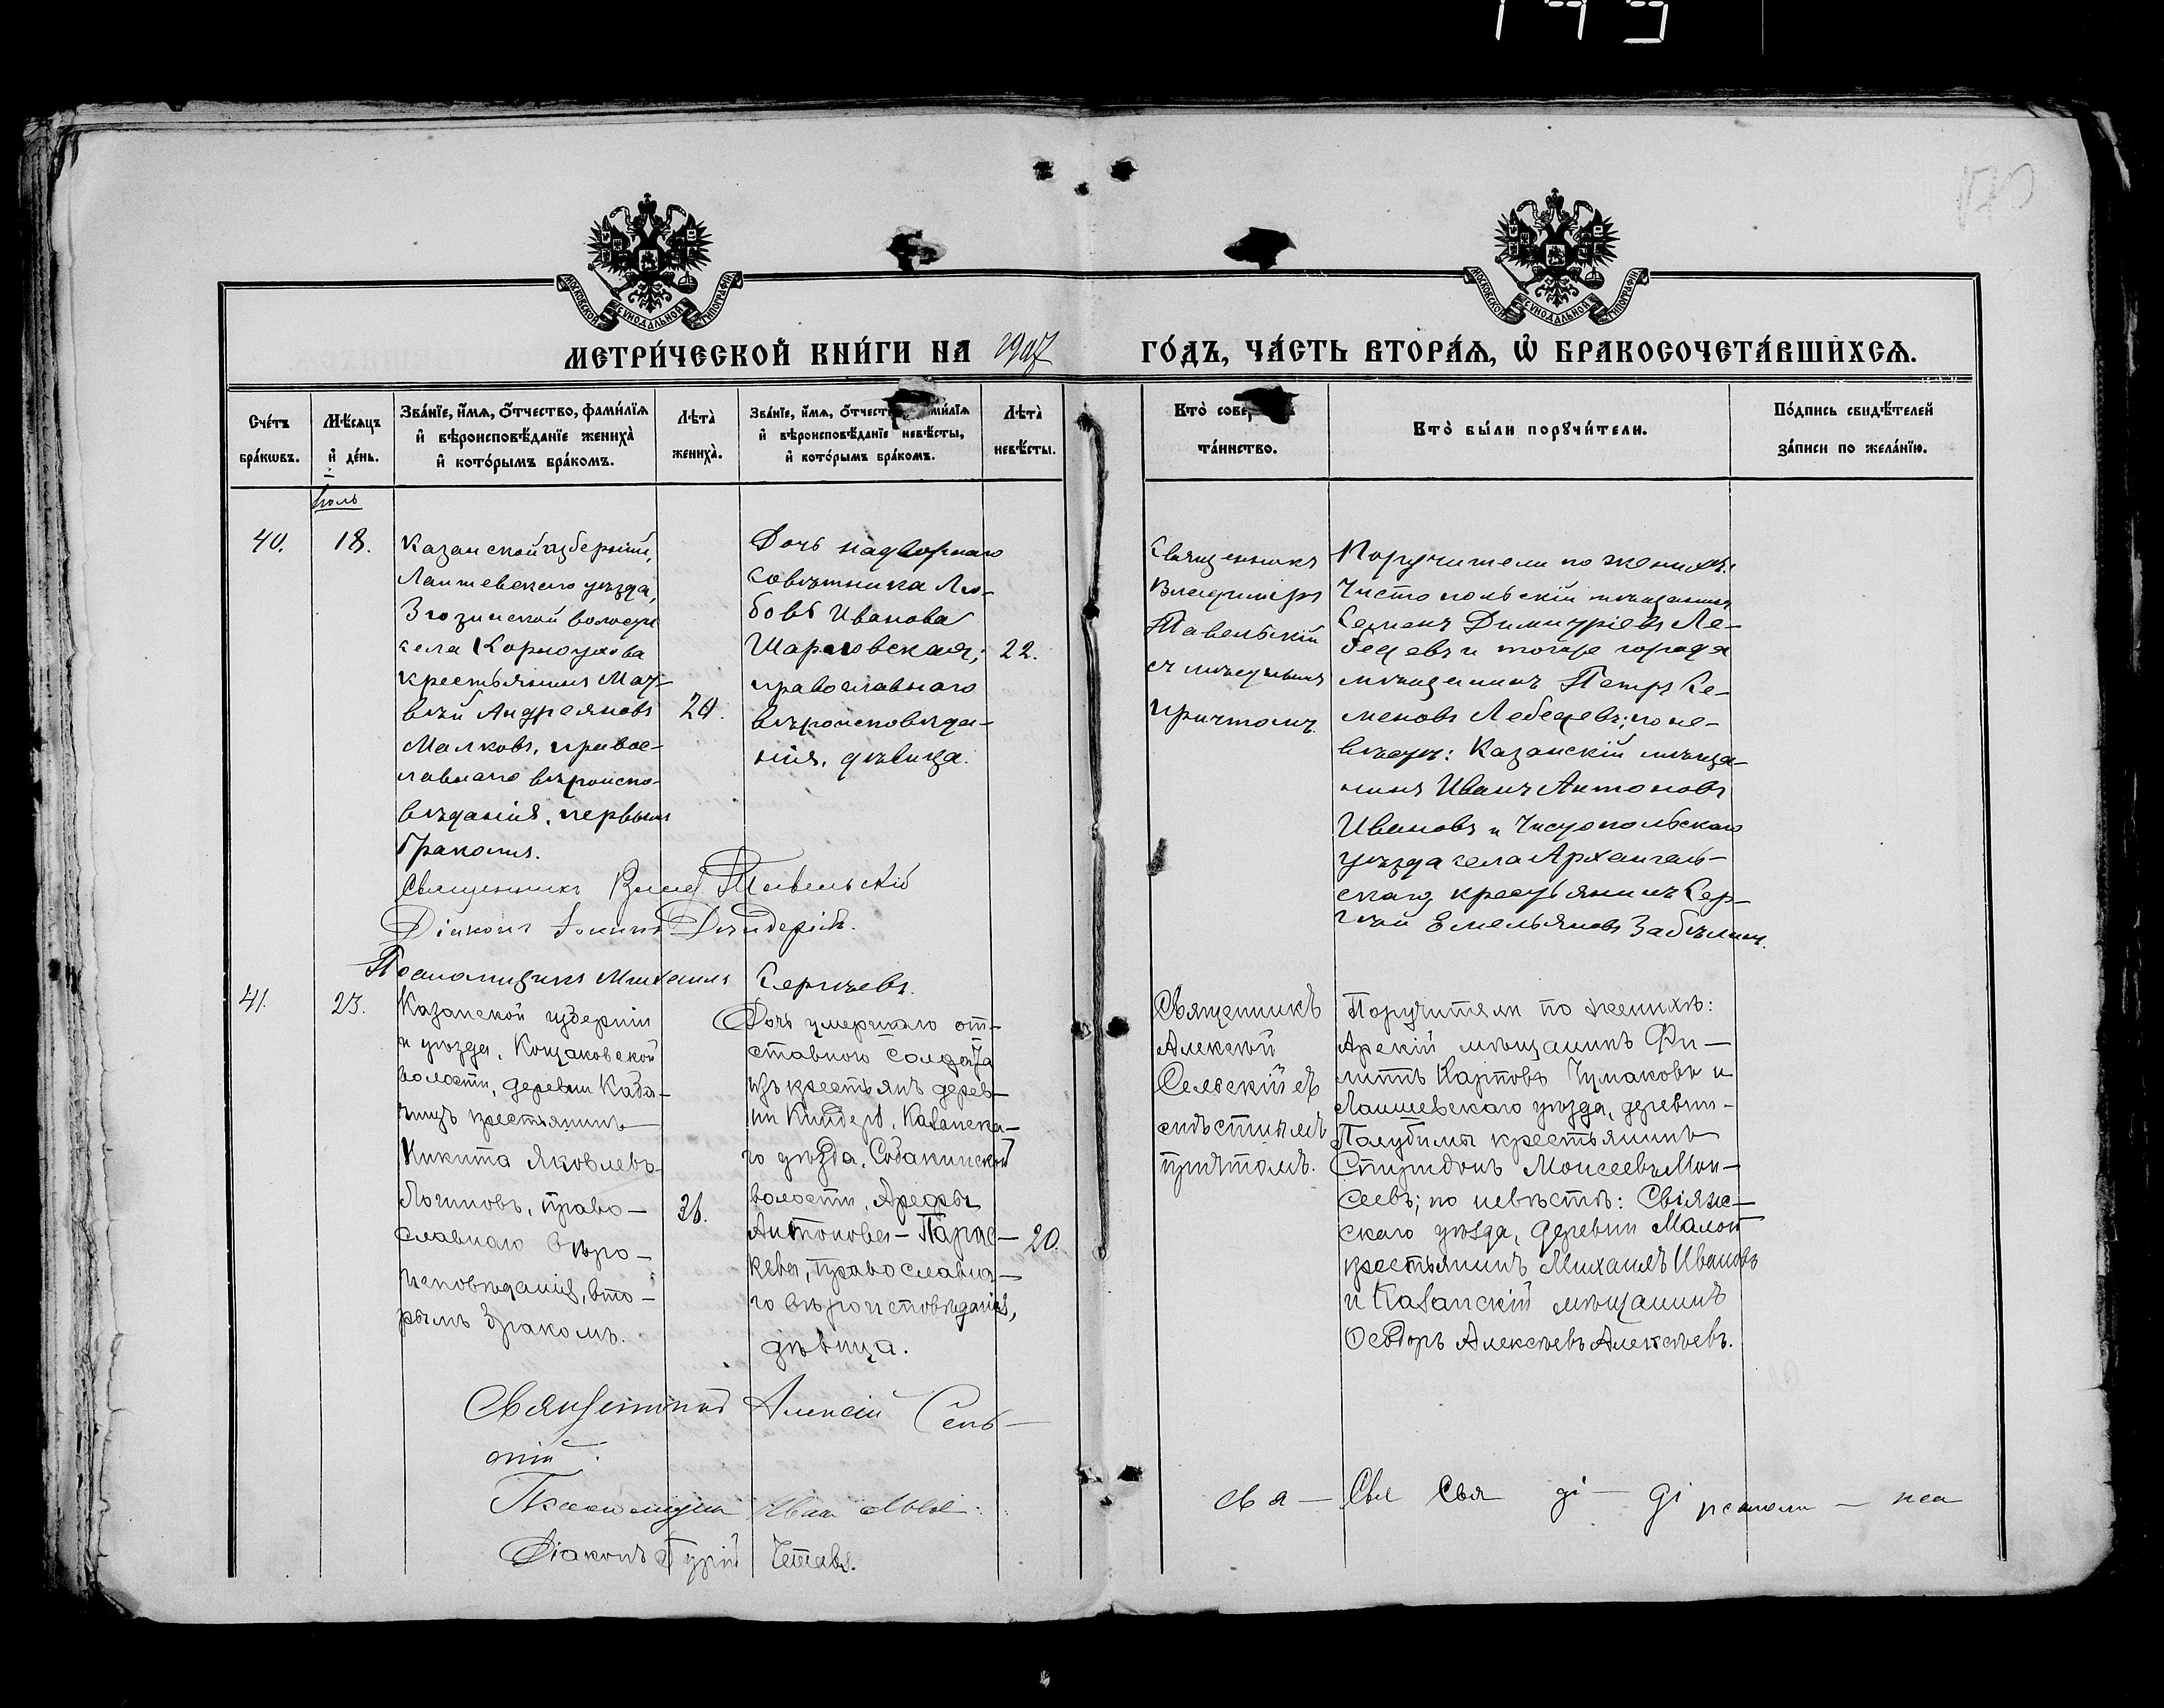 МЕТРИ́ЧЕСКОЙ КНИ́ГИ НА 1907 ГО́ДЪ, ЧА́СТЬ ВТОРА́Я, Ѡ҆ БРАКОСОЧЕТА́ВШИХСЯ.
Сче́тъ бра́кѡвъ.
Мѣ́сяцъ и҆ де́нь.
Зва́нїе, и҆́мя, ѻ҆́тчество, фами́лїя
и҆ вѣроисповѣ́данїе жениха̀
и҆ кото́рымъ бра́комъ.
Лѣта̀ жениха̀.
и҆ вѣроисповѣ́данїе невѣ́сты,
и҆ кото́рымъ бра́комъ.
Лѣта̀ невѣ́сты.
та́инство.
Кто̀ бы́ли порꙋчи́тели.
По́дпись свидѣ́телей
за́писи по жела́нїю.
Іюль
40.
18.
Казанской губерніи,
Лаишевскаго уѣзда,
волости
села Корноухова
крестьянинъ Мат-
вѣй Андреяновъ
Малковъ, правос-
лавнаго вѣроиспо-
вѣданія, первымъ
бракомъ.
Дочь надворнаго
совѣтника Лю-
бовь Иванова
православнаго
вѣроисповѣда-
нія, дѣвица.
22.
Священникъ
Владимиръ
Павельскій
съ мѣстнымъ
причтомъ.
Поручители по женихѣ:
Чистопольскій мѣщанинъ
Семенъ Димитріевъ Ле-
бедевъ и того же города
мѣщанинъ Петръ Се-
меновъ Лебедевъ; по не-
вѣстѣ: Казанскій мѣща-
нинъ Иванъ Антоновъ
Ивановъ и Чистопольскаго
уѣзда села Архангель-
скаго крестьянинъ Сер-
гѣй Емельяновъ Забѣлинъ.
Священникъ Влад. Павельскій
Діаконъ Іоаннъ
Псаломщикъ Михаилъ Сергѣевъ.
41.
23.
Казанской губерніи
и уѣзда, Кощаковской
волости, деревни
крестьянинъ
Никита Яковлевъ
Логиновъ, право-
славнаго вѣро-
исповѣданія, вто-
рымъ бракомъ.
Дочь умершаго от-
ставного солдата
изъ крестьянъ дерев-
ни Киндеръ, Казанска-
го уѣзда, Собакинской
волости, Арефы
Антонова – Парас-
кева, православна-
го вѣроисповѣданія,
дѣвица.
20.
Священникъ
Алексѣй
Сельскій съ
мѣстнымъ
причтомъ.
Поручители по женихѣ:
Арскій мѣщанинъ Фи-
липпъ Карповъ Чумаковъ и
Лаишевскаго уѣзда, деревни
крестьянинъ
Спиридонъ Моисеевъ Мои-
сеевъ; по невѣстѣ: Свіяж-
скаго уѣзда, деревни Малой
крестьянинъ Михаилъ Ивановъ
и Казанскій мѣщанинъ
Ѳеодоръ Алексѣевъ Алексѣевъ.
Священникъ Алексій Сель-
скій.
Псаломщикъ Иван
Діаконъ Гурій
свя- Свя Свя ді- ді